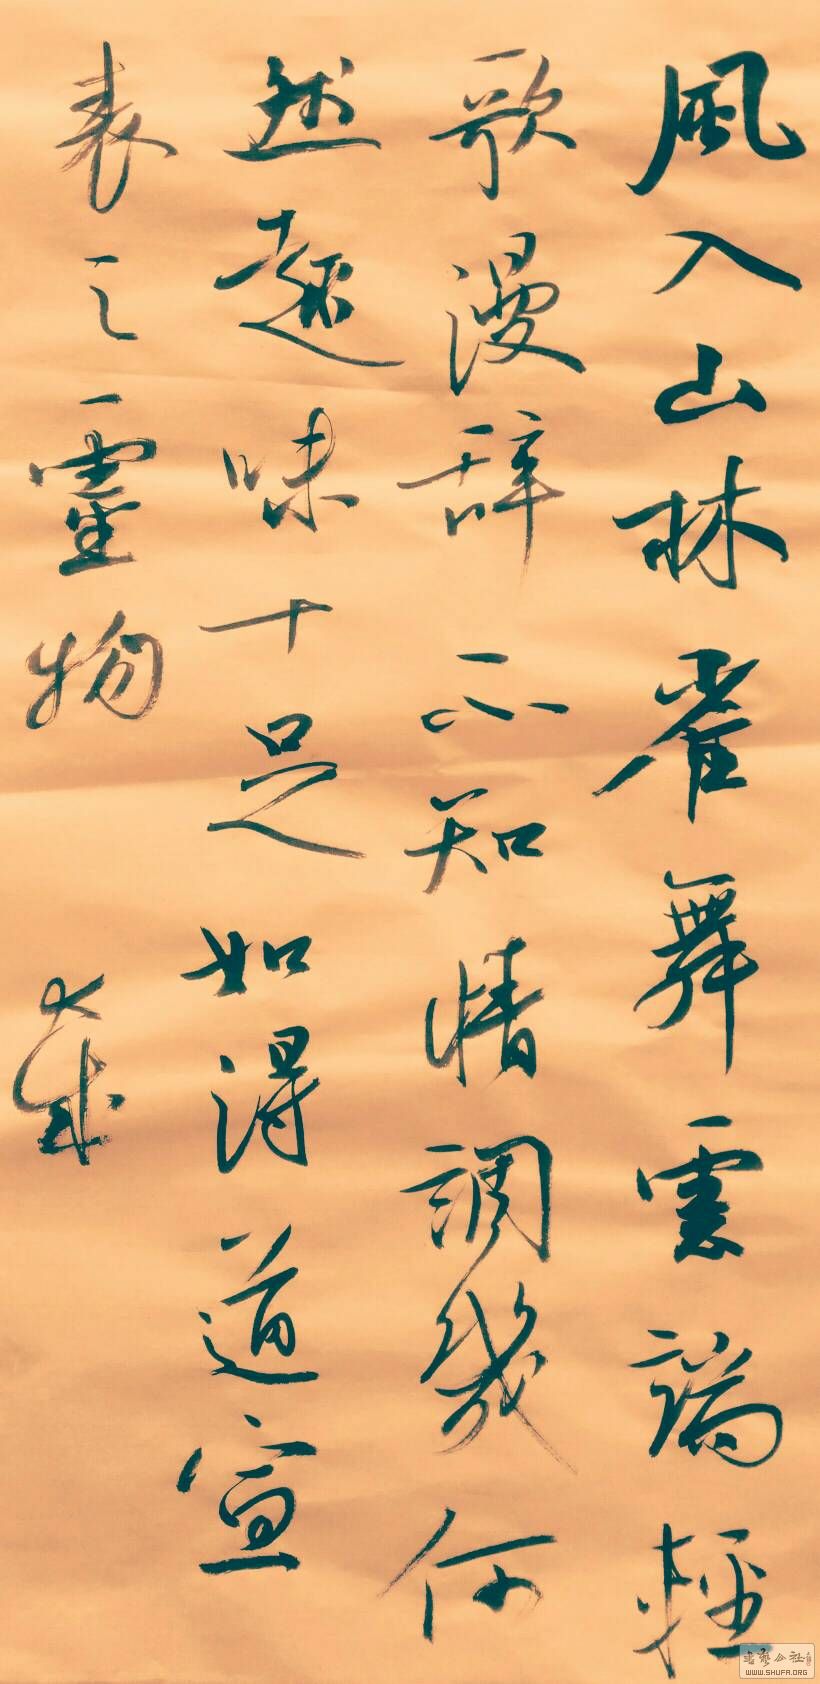 風入山林雀舞雲端輕
歌漫辞不知情調幾何
然趣味十足如得道宣
表之靈物
书艺公社
WWW.SHUFA.ORG